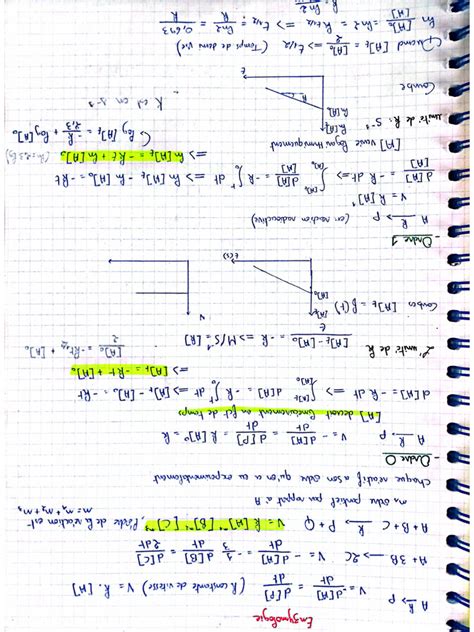 Enzymologie
A →k P    V = - d[A]/dt = d[P]/dt    (k constante de vitesse) V = k [A].
A + 3B → 2C    V = - d[A]/dt = - 1/3 d[B]/dt = d[C]/2dt
A + B + C →k P + Q    V = k [A]^m1 [B]^m2 [C]^m3, l'ordre de la réaction est
m = m1 + m2 + m3
m1 ordre partiel par rapport à A
chaque réactif a son ordre qu'on a eu expérimentalement
- Ordre 0
A →k P    V = - d[A]/dt = d[P]/dt = k [A]^0
[A] décroit linéairement en fct de temps
d[A] = - k dt => ∫ d[A] = - k ∫ dt => [A]t - [A]0 = - kt
=> [A]t = - kt + [A]0
L'unité de k    [A]t - [A]0 / t = - k => M/s^-1    [A]0/2 = - kt1/2 + [A]0
Courbes [A]t = f(t)
[A]t    V
[A]0
t(s)
- Ordre 1
A →k P    (en réaction radioactive)
V = k [A]^1
d[A]/[A] = - k dt => ∫ d[A]/[A] = - k ∫ dt => ln [A]t - ln [A]0 = - kt
=> ln [A]t = - kt + ln [A]0    (ln = 2,3 log)
[A] varie logarithmiquement
log [A]t = - k/2,3 t + log [A]0
unité de k : s^-1    k est en s^-1
Courbe
ln[A]t
ln[A]0
k
t
Quand [A]t = [A]0/2 => t1/2 (Temps de demi vie)
ln [A]0/[A]t = ln 2 = k t1/2 => t1/2 = ln2/k = 0,693/k